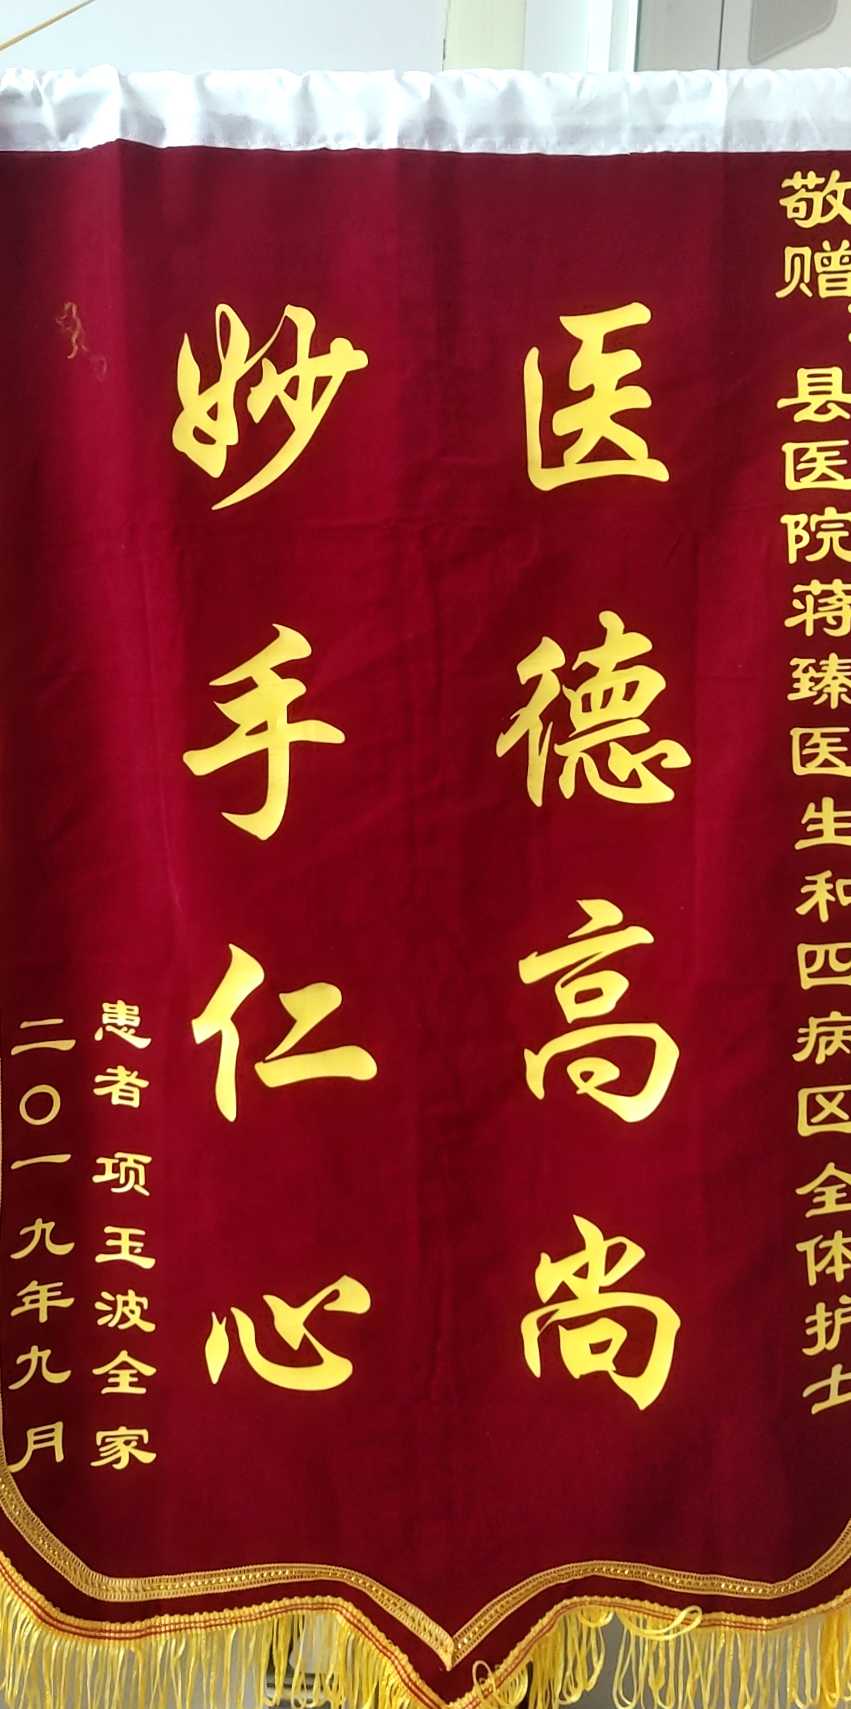 敬赠:县医院蒋臻医生和四病区全体护士
医德高尚
妙手仁心
患者 项玉波全家
二〇一九年九月